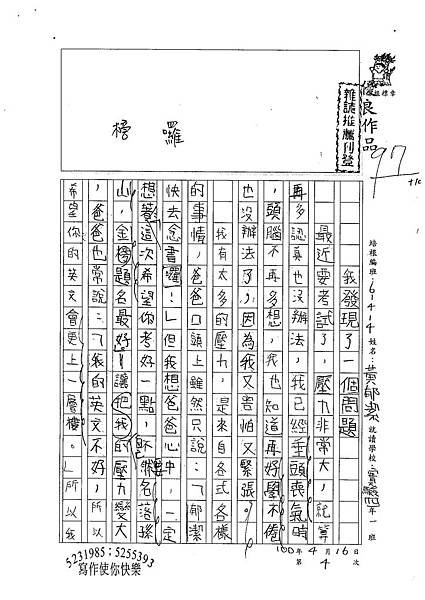 優良作品
雜誌推薦刊登
97
榜 囉
培根編班：6-4-4 姓名：黃郁潔 就讀學校： 年一班
我發現了一個問題
最近要考試了，壓力非常大，就算
再多認真也沒辦法，我已經垂頭喪氣時
，頭腦不再多想，我也知道再好學不倦
也沒辦法了，因為我又害怕又緊張。
我有太多的壓力，是來自各式各樣
的事情，爸爸口頭上雖然只說：「郁潔
快去念書囉！」但我想爸爸心中，一定
想著這次希望你考好一點，名落孫
山，金榜題名最好！讓他我的壓力變大
，爸爸也常說：「我的英文不好，所以
希望你的英文會更上一層樓。」所以我
100年4月16日
第4次
5231985；5255393
寫作使你快樂